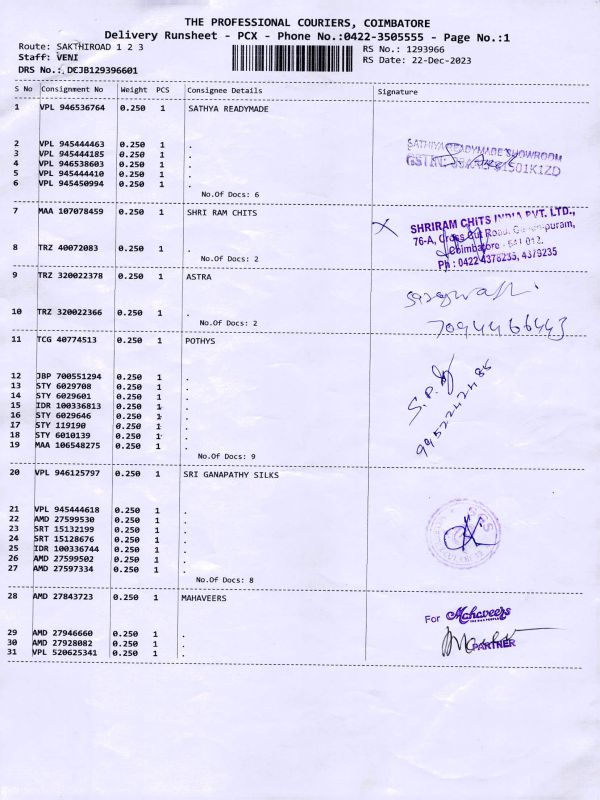 THE PROFESSIONAL COURIERS, COIMBATORE
Delivery Runsheet - PCX - Phone No.:0422-3505555 - Page No.:1
Route: SAKTHIROAD 1 2 3 RS No.: 1293966
Staff: VENI RS Date: 22-Dec-2023
DRS No.: DCJB129396601
S No Consignment No Weight PCS Consignee Details Signature
1 VPL 946536764 0.250 1 SATHYA READYMADE
2 VPL 945444463 0.250 1 .
3 VPL 945444185 0.250 1 .
4 VPL 946538603 0.250 1 .
5 VPL 945444410 0.250 1 .
6 VPL 945450994 0.250 1 .
SATHIYA READYMADE SHOWROOM
No.Of Docs: 6
7 MAA 107078459 0.250 1 SHRI RAM CHITS
8 TRZ 40072083 0.250 1 .
SHRIRAM CHITS INDIA PVT. LTD.,
76-A, Cross Cut Road,
Coimbatore - 641 012.
Ph : 0422 4376235, 4379235
No.Of Docs: 2
9 TRZ 320022378 0.250 1 ASTRA
10 TRZ 320022366 0.250 1 .
7094466443
No.Of Docs: 2
11 TCG 40774513 0.250 1 POTHYS
12 JBP 700551294 0.250 1 .
13 STY 6029708 0.250 1 .
14 STY 6029601 0.250 1 .
15 IDR 100336813 0.250 1 .
16 STY 6029646 0.250 1 .
17 STY 119190 0.250 1 .
18 STY 6010139 0.250 1 .
19 MAA 106548275 0.250 1 .
No.Of Docs: 9
20 VPL 946125797 0.250 1 SRI GANAPATHY SILKS
21 VPL 945444618 0.250 1 .
22 AMD 27599530 0.250 1 .
23 SRT 15132199 0.250 1 .
24 SRT 15128676 0.250 1 .
25 IDR 100336744 0.250 1 .
26 AMD 27599502 0.250 1 .
27 AMD 27597334 0.250 1 .
No.Of Docs: 8
28 AMD 27843723 0.250 1 MAHAVEERS
For Mahaveers
29 AMD 27946660 0.250 1 .
30 AMD 27928082 0.250 1 .
31 VPL 520625341 0.250 1 .
PARTNER